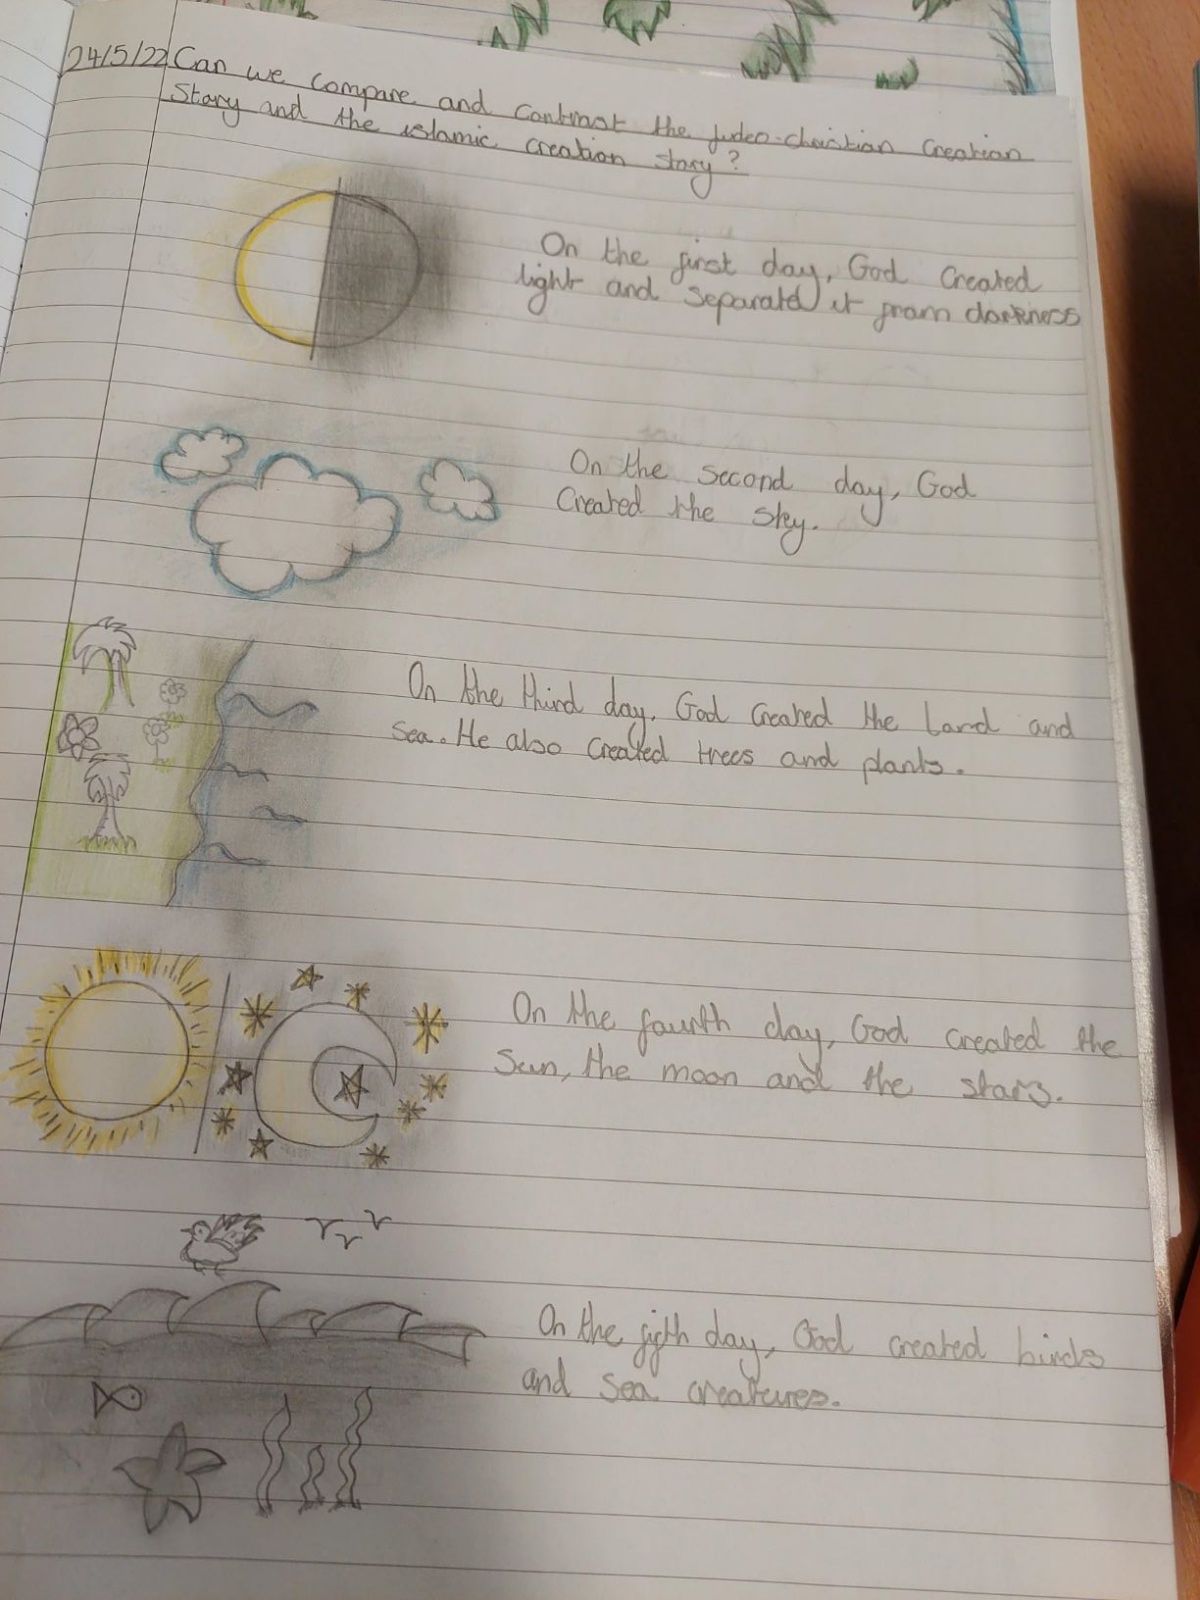 24/5/22 Can we compare and contrast the judeo-christian creation
Story and the islamic creation story?
On the first day, God created
light and separated it from darkness
On the second day, God
Created the sky.
On the third day, God created the land and
sea. He also created trees and plants.
On the fourth day, God created the
Sun, the moon and the stars.
On the fifth day, God created birds
and sea creatures.